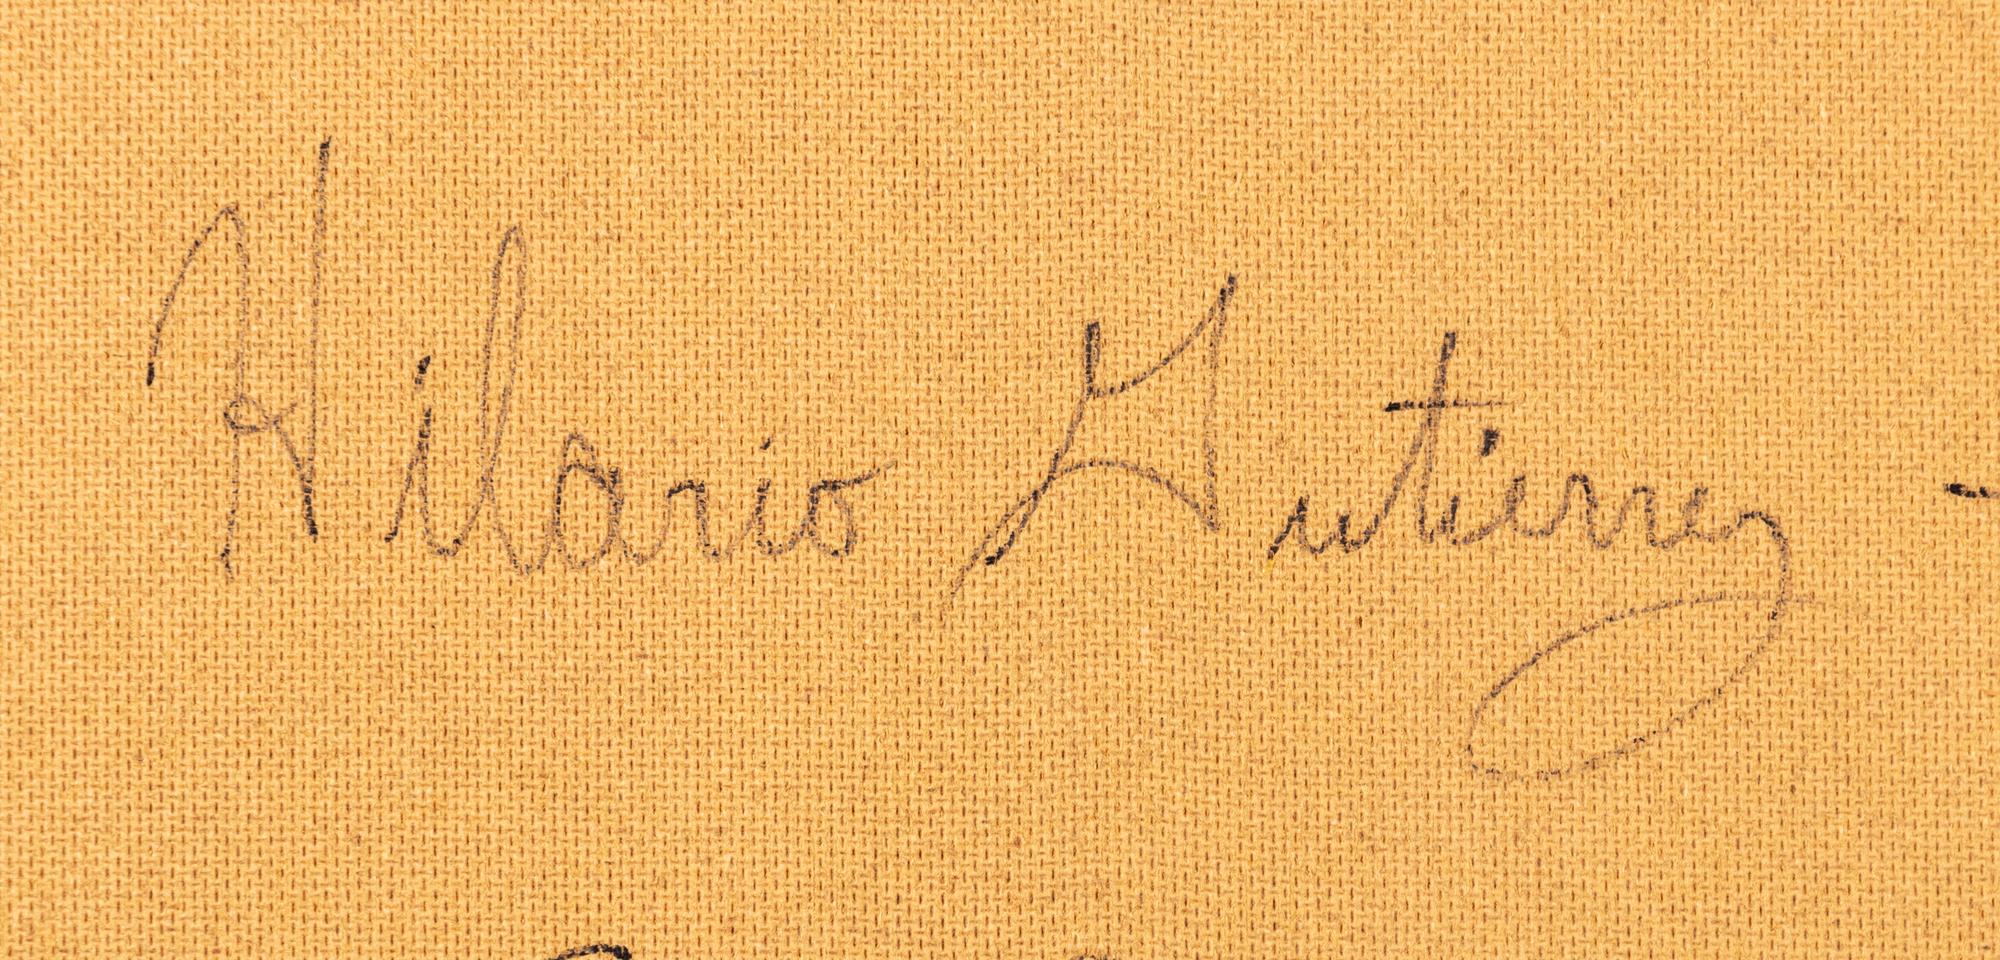 Hilario Gutierrez -